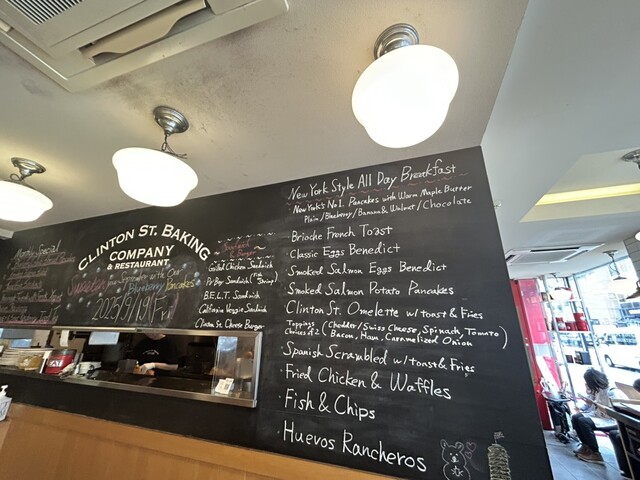 CLINTON ST. BAKING
COMPANY
& RESTAURANT
with Our
Blueberry Pancakes
2025/9/19(Fri)
Grilled Chicken Sandwich
Po-Boy Sandwich (Fish Shrimp)
B.E.L.T. Sandwich
California Veggie Sandwich
Clinton St. Cheese Burger
New York Style All Day Breakfast
New York's No1. Pancakes with Warm Maple Butter
Plain/Blueberry/Banana & Walnut/Chocolate
Brioche French Toast
Classic Eggs Benedict
Smoked Salmon Eggs Benedict
Smoked Salmon Potato Pancakes
Clinton St. Omelette w/ toast & Fries
Toppings (Cheddar/Swiss Cheese, Spinach, Tomato
Choice of 2 Bacon, Ham, Caramelized Onion)
Spanish Scrambled w/ toast & Fries
Fried Chicken & Waffles
Fish & Chips
Huevos Rancheros